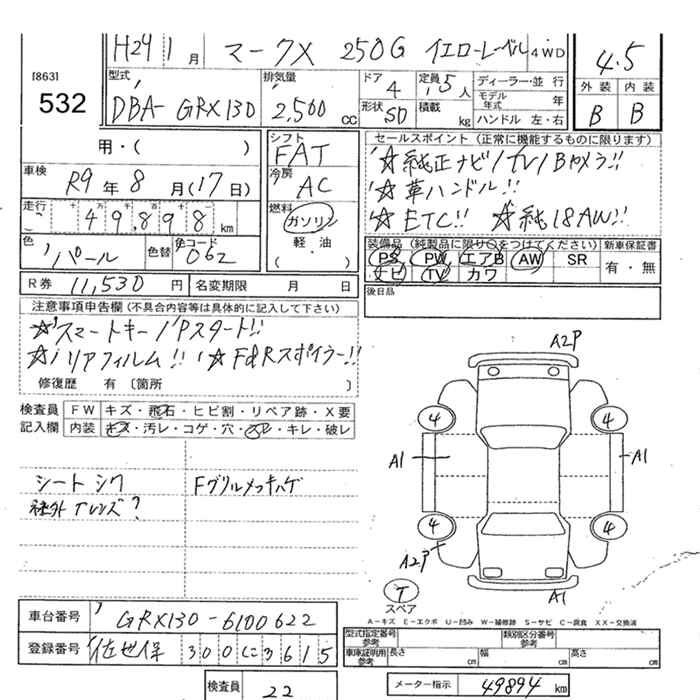 H24 1月 マークX 250G イエローレーベル 4WD 4.5
[863]
532
型式 DBA- GRX130
排気量 2,500 CC
ドア 4
形状 SD
定員 5人
積載 kg
ディーラー・並行
モデル年式 年
ハンドル 左・右
外装 B
内装 B
用・( )
車検 R9年 8月(17日)
走行 49,898 km
色 パール
色替
色コード 062
シフト FAT
冷房 AC
燃料 ガソリン
軽・油
( )
セールスポイント (正常に機能するものに限ります)
☆純正ナビ/TV/Bカメラ!!
☆革ハンドル!!
☆ETC!! ☆純18AW!!
装備品 (純製品に限り○をつけてください) 新車保証書
PS PW エアB AW SR 有・無
ナビ TV カワ
後日品
R券 11,530円
名変期限 月 日
注意事項申告欄 (不具合内容等は具体的に記入して下さい)
☆スマートキー/Pスタート!!
☆リアフィルム!! ☆F&Rスポイラー!!
修復歴 有 〔箇所 〕
検査員記入欄
FW キズ・飛石・ヒビ割・リペア跡・X要
内装 キズ・汚レ・コゲ・穴・スレ・キレ・破レ
シート シワ
Fグリルメッキハゲ
社外 Tレンズ?
A2P
4 4
A1 A1
4 4
A2P
A1
T
スペア
A－キズ E－エクボ U－凹み W－補修跡 S－サビ C－腐食 XX－交換済
車台番号 GRX130-6100622
登録番号 佐世保 300 に 3615
検査員 22
型式指定番号 参考
類別区分番号 参考
車庫証明用 参考 長さ cm 幅 cm 高さ cm
メーター指示 49894 km